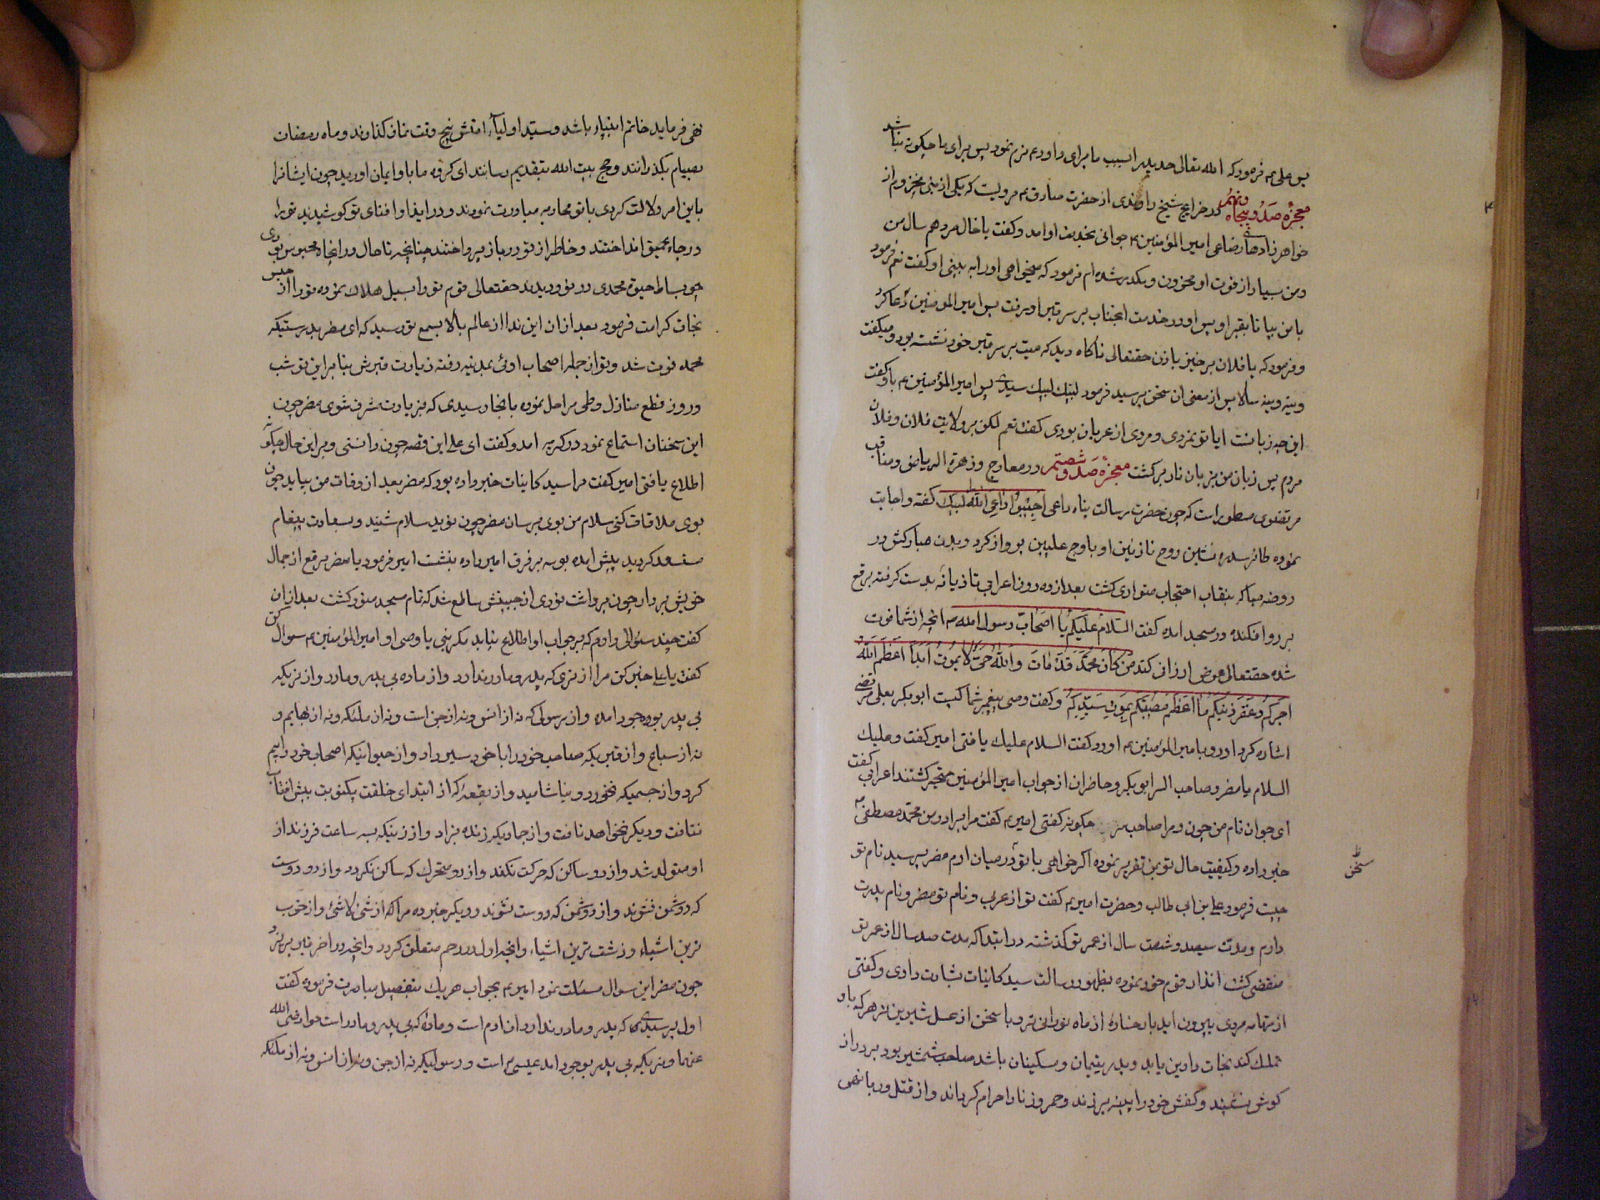 پس علی ع فرمود که الله تعالی حدید را بسبب ما برای داود ع نرم نمود پس برای ما چگونه نباشد
معجزهٔ صد و پنجاه و نهم در خرایج شیخ راوندی از حضرت صادق ع مرویست که یکی از بنی مخزوم از
خواهرزادهای رضاعی امیر المؤمنین ع جوانی بخدمت او امد و گفت یا خال مرد هم سال من
و من بسیار از فوت او محزون و مکدر شده‌ام فرمود که میخواهی او را به بینی او گفت نعم فرمود
با من بیا تا بقبر او پس او در خدمت انجناب بر سر قبر او رفت پس امیر المومنین دعا کرد
و فرمود که یا فلان برخیز باذن حقتعالی ناگاه دید که میت بر سر قبر خود نشسته بود و میگفت
وینه وینه سالا پس از معنی ان سخن پرسید فرمود لبیک لبیک سیدی پس امیر المؤمنین ع باو گفت
این چه زبانست ایا تو نمردی و مردی از عربان بودی گفت نعم لکن بر ولایت فلان و فلان
مردم پس زبان من بزبان نار برگشت معجزهٔ صد و شصتم در معارج و زهرة الریاض و مناقب
مرتضوی مسطور است که چون حضرت رسالت پناه داعی اجیبوا داعی الله لبیک گفته و اجابت
نموده طائر سدره نشین روح نازنین او باوج علیین پرواز کرد و بدن مبارکش در
روضه مبارکه بنقاب احتجاب متواری گشت بعد از ده روز اعرابی تازیانه بدست گرفته برقع
بر رو افکنده در مسجد امده گفت السلام علیکم یا اصحاب رسول الله ص انچه از شما فوت
شده حقتعالی عوض ارزانی کند من کان محمد قد مات والله حی لا یموت ابدا اعظم الله
اجرکم و غفر ذنبکم ما اعظم مصیبتکم بموت سیدکم و گفت وصی پیغمبر شما کیست ابو بکر بعلی مرتضی
اشاره کرد او رو بامیر المؤمنین ع اورد گفت السلام علیک یا فتی امیر گفت و علیک
السلام یا مضر و صاحب البئر ابو بکر و حاضران از جواب امیر المؤمنین متحیر گشتند اعرابی گفت
ای جوان نام من چون و مرا صاحب بئر چگونه گفتی امیر ع گفت مرا برادر من محمد مصطفی ص
خبر داده و کیفیت حال تو بمن تقریر نموده اگر خواهی با تو در میان ارم مضر پرسید نام تو
چیست فرمود علی بن ابی طالب و حضرت امیر ع گفت تو از عربی و نام تو مضر و نام پدرت
دارم و مدت سیصد و شصت سال از عمر تو گذشته در ابتدا که مدت صد سال از عمر تو
منقضی گشت انذار قوم خود نموده بظهور رسالت سید کاینات بشارت دادی و گفتی
از تهامه مردی بیرون اید با رخساره از ماه نورانی‌تر و با سخن از عسل شیرین‌تر هر که باو
تمسک کند نجات دارین یابد و پدر یتیمان و مسکینان باشد صاحب شمشیر بود بر دراز
گوش نشیند و کفش خود را پینه بر زند و خمر و زنا را حرام گرداند و از قتل و ربا نهی
سخن
نهی فرماید خاتم انبیا باشد و سید اولیا امتش پنج وقت نماز گذارند و ماه رمضان
بصیام بگذرانند و حج بیت الله بتقدیم رسانند ای گروه ما باو ایمان اورید چون ایشانرا
باین امر دلالت کردی با تو محاربه مبادرت نمودند و در ایذا و افنای تو کوشیدند تو را
در چاه عمیق انداختند و خاطر از تو در باز پرداختند چنانچه تا حال در انجا محبوس بودی
چون بساط حیوة محمدی در نوردیدند حقتعالی قوم تو را بسیل هلاک نموده تو را از حبس
نجات کرامت فرمود بعد از ان این ندا از عالم بالا بسمع تو رسید که ای مضر بدرستیکه
محمد فوت شد و تو از جمله اصحاب اوئی بمدینه رفته زیارت قبرش بنما بر این تو شب
و روز قطع منازل و طی مراحل نموده باینجا رسیدی که بزیارت مشرف شوی مضر چون
این سخنان استماع نمود در گریه امد و گفت ای علی این قصه چون دانستی و بر این حال چگونه
اطلاع یافتی امیر گفت مرا سید کاینات خبر داده بود که مضر بعد از وفات من بیاید چون
بوی ملاقات کنی سلام من بوی برسان مضر چون نوید سلام شنید و بسعادت پیغام
مستسعد گردید پیش امده بوسه بر فرق امیر داده بنشست امیر فرمود یا مضر برقع از جمال
خویش بردار چون برداشت نوری از جبینش ساطع شد که تمام مسجد منور گشت بعد از ان
گفت چند سئوال دارم که بر جواب او اطلاع نیابد مگر نبی یا وصی او امیر المؤمنین ع سوال کن
گفت یا علی خبر کن مرا از نری که پدر و مادر ندارد و از ماده بی پدر و مادر و از نریکه
بی پدر بوجود امده و از رسولی که نه از انس و نه از جن است و نه از ملئکه و نه از بهایم و
نه از سباع و از قبریکه صاحب خود را با خود سیر داد و از حیوانیکه اصحاب خود را بیم
کرد و از جسمیکه نخورد و نیاشامید و از بقعهٔ که از ابتدای خلقت یکنوبت بیش افتاب
نتافت و دیگر نخواهد تافت و از جمادیکه زنده بزاد و از زنیکه بسه ساعت فرزند از
او متولد شد و از دو ساکن که حرکت نکنند و از دو متحرک که ساکن نگردند و از دو دوست
که دشمن نشوند و از دو دشمن که دوست نشوند و دیگر خبر ده مرا که از شئ و لا شئ و از خوب
ترین اشیاء و زشت ترین اشیاء و انچه اول در رحم متعلق گردد و انچه در اخر در قبر بریزد
چون مضر این سوال مسئلت نمود امیر ع بجواب هر یک بتفصیل مبادرت فرموده گفت
اول پرسیدی که پدر و مادر ندارد ان ادم است و ماده که بی پدر و مادر است حوا رضی الله
عنهما و نریکه بی پدر بوجود امد عیسی ع است و رسولیکه نه از جن و نه از انس و نه از ملئکه